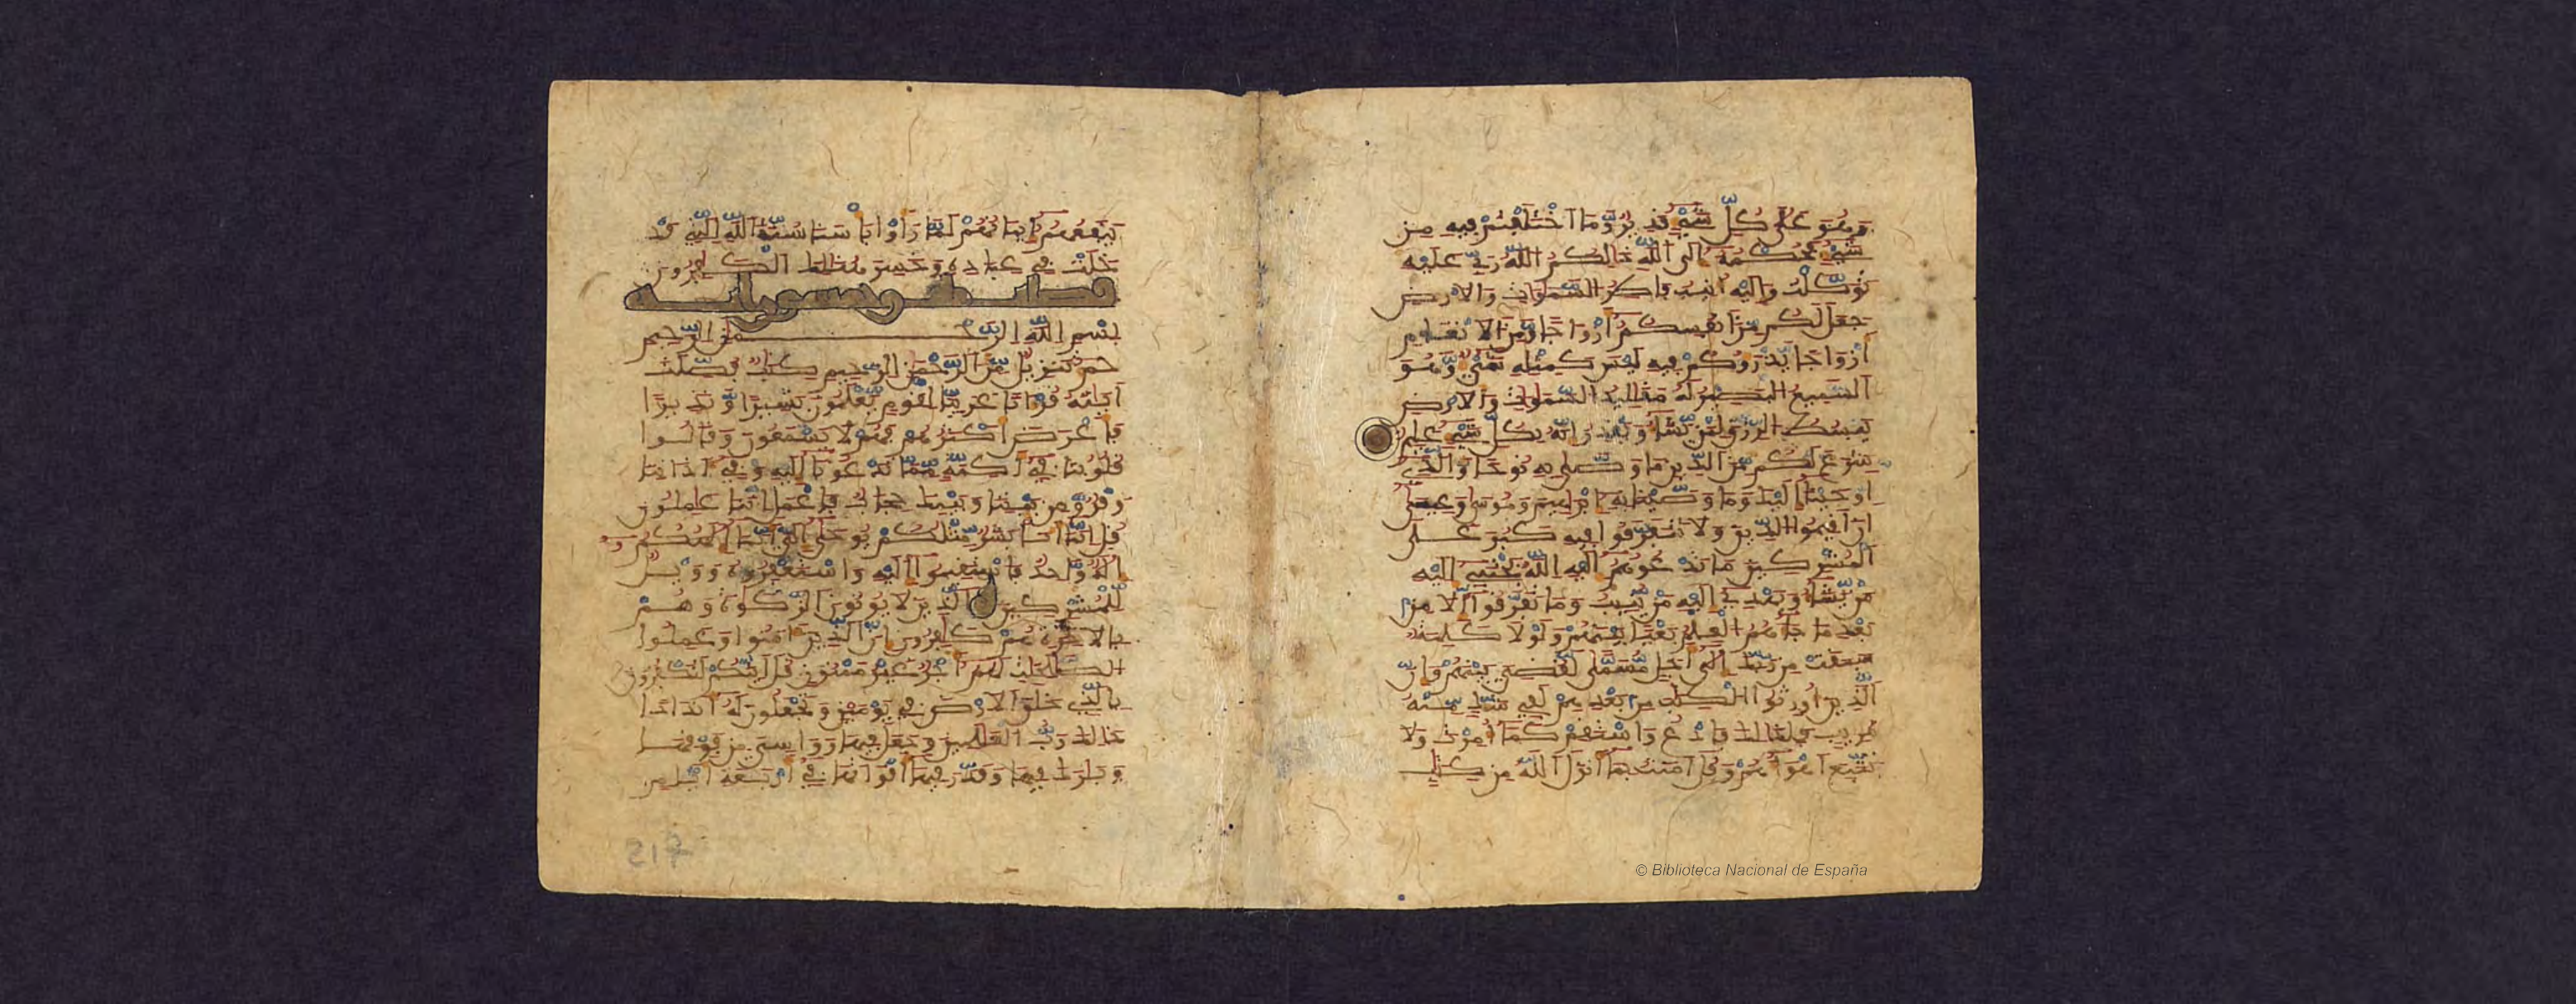 وهو على كل شيء قدير وما اختلفتم فيه من
شيء فحكمه إلى الله ذلكم الله ربي عليه
توكلت وإليه أنيب فاطر السموات والأرض
جعل لكم من أنفسكم أزواجا ومن الأنعام
أزواجا يذرؤكم فيه ليس كمثله شيء وهو
السميع البصير له مقاليد السموات والأرض
يبسط الرزق لمن يشاء ويقدر إنه بكل شيء عليم
شرع لكم من الدين ما وصى به نوحا والذي
أوحينا إليك وما وصينا به إبراهيم وموسى وعيسى
أن أقيموا الدين ولا تتفرقوا فيه كبر على
المشركين ما تدعوهم إليه الله يجتبي إليه
من يشاء ويهدي إليه من ينيب وما تفرقوا إلا من
بعد ما جاءهم العلم بغيا بينهم ولولا كلمة
سبقت من ربك إلى أجل مسمى لقضي بينهم وإن
الذين أورثوا الكتب من بعدهم لفي شك منه
مريب فلذلك فادع واستقم كما أمرت ولا
تتبع أهواءهم وقل آمنت بما أنزل الله من كتب
© Biblioteca Nacional de España
ينفعهم إيمانهم لما رأوا بأسنا سنة الله التي قد
خلت في عباده وخسر هنالك الكفرون
فصلت
بسم الله الرحمن الرحيم
حم تنزيل من الرحمن الرحيم كتب فصلت
آيته قرآنا عربيا لقوم يعلمون بشيرا ونذيرا
فأعرض أكثرهم فهم لا يسمعون وقالوا
قلوبنا في أكنة مما تدعونا إليه وفي آذاننا
وقر ومن بيننا وبينك حجاب فاعمل إننا عملون
قل إنما أنا بشر مثلكم يوحى إلي أنما إلهكم
إله واحد فاستقيموا إليه واستغفروه وويل
للمشركين الذين لا يوتون الزكوة وهم
بالآخرة هم كفرون إن الذين آمنوا وعملوا
الصلحت لهم أجر غير ممنون قل أينكم لتكفرون
بالذي خلق الأرض في يومين وتجعلون له أندادا
ذلك رب العلمين وجعل فيها روسي من فوقها
وبرك فيها وقدر فيها أقواتها في أربعة أيام
217